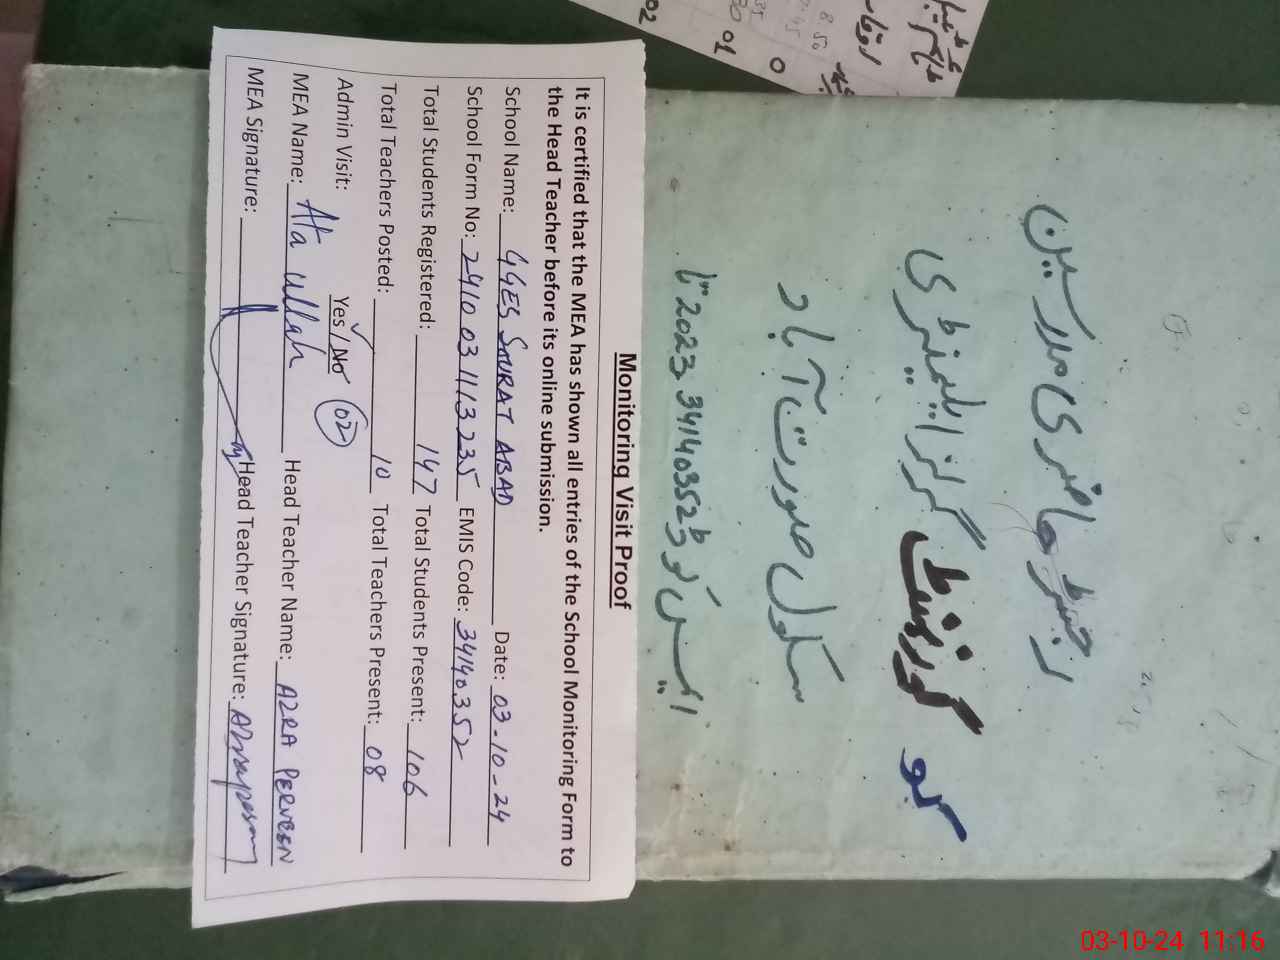 Monitoring Visit Proof
It is certified that the MEA has shown all entries of the School Monitoring Form to
the Head Teacher before its online submission.
School Name: GGES SOURAT ABAD Date: 03-10-24
School Form No: 2410 03 1113 235 EMIS Code: 34140352
Total Students Registered: 147 Total Students Present: 106
Total Teachers Posted: 10 Total Teachers Present: 08
Admin Visit: Yes / No 02
MEA Name: Ata Ullah Head Teacher Name: AZRA PERVEEN
MEA Signature: Head Teacher Signature:
رجسٹر حاضری مدرسین
گورنمنٹ گرلز ایلیمنٹری
سکول صورت آباد
34140352 2023 تا
02
01
0
03-10-24 11:16